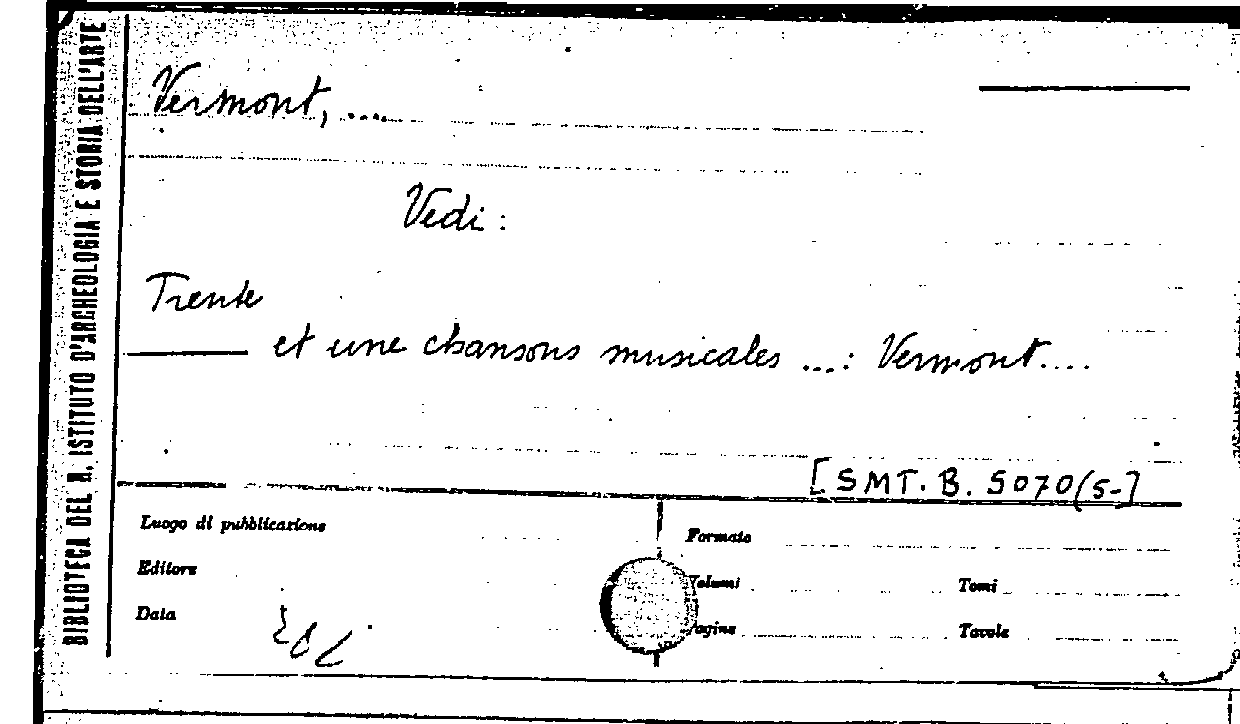 BIBLIOTECA DEL R. ISTITUTO D'ARCHEOLOGIA E STORIA DELL'ARTE
Vermont, ....
Vedi :
Trente
et une chansons musicales ...: Vermont....
[SMT. B. 5070(5-]
Luogo di pubblicazione
Editore
Data
Formato
Volumi
Tomi
Pagine
Tavole